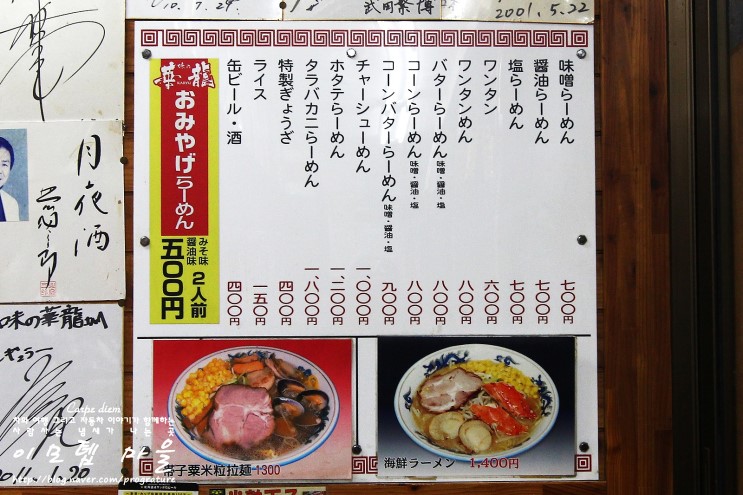 10.7.24
武田繁博
2001.5.22
味噌らーめん 七〇〇円
醤油らーめん 七〇〇円
塩らーめん 七〇〇円
ワンタン 六〇〇円
ワンタンめん 八〇〇円
バターらーめん 味噌・醤油・塩 八〇〇円
コーンらーめん 味噌・醤油・塩 八〇〇円
コーンバターらーめん 味噌・醤油・塩 九〇〇円
チャーシューめん 一、〇〇〇円
ホタテらーめん 一、二〇〇円
タラバカニらーめん 一、八〇〇円
特製ぎょうざ 四〇〇円
ライス 一五〇円
缶ビール・酒 四〇〇円
味の
華龍
おみやげらーめん
みそ味
醤油味
2人前
五〇〇円
月夜酒
味の華龍さん江
帯子粟米粒拉麺 1300
海鮮ラーメン 1,400円
Carpe diem
이모텝 마을
http://blog.naver.com/prograture
2011.1.20